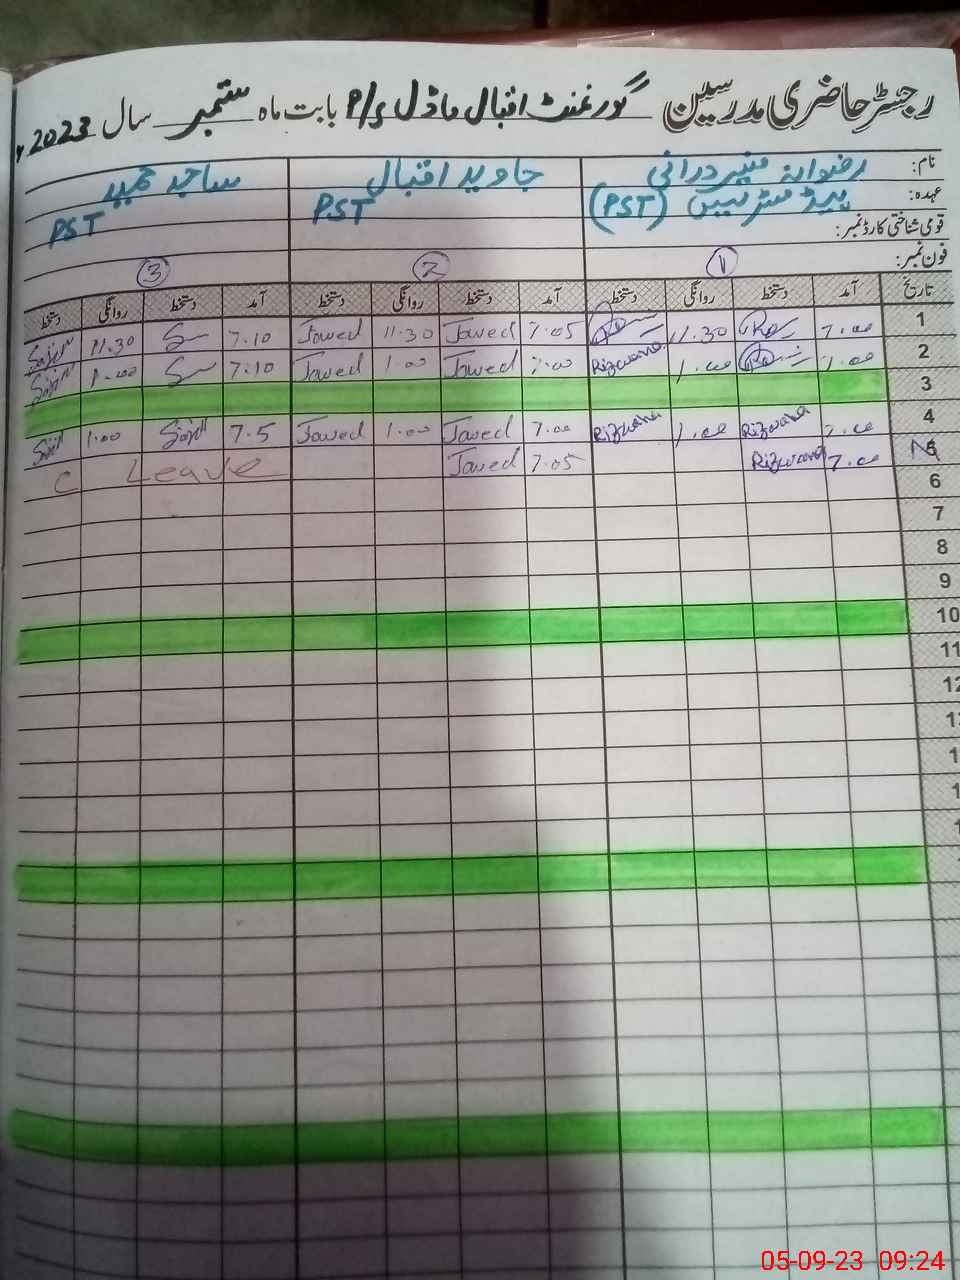 رجسٹر حاضری مدرسین گورنمنٹ اقبال ماڈل P/S بابت ماہ ستمبر سال 2023ء
نام: رضوانہ منیر درانی جاوید اقبال ساجد حمید
عہدہ: ہیڈ مسٹریس (PST) PST PST
قومی شناختی کارڈ نمبر:
فون نمبر:
1 2 3
تاریخ آمد دستخط روانگی دستخط آمد دستخط روانگی دستخط آمد دستخط روانگی دستخط
1 7.00 11.30 7.05 Jawed 11.30 Jawed 7.10 11.30
2 7.00 1.00 Rizwana 7.00 Jawed 1.00 Jawed 7.10 1.00
3
4 7.00 Rizwana 1.00 Rizwana 7.00 Jawed 1.00 Jawed 7.5 Sajid 1.00 Sajid
5 7.00 Rizwana 7.05 Jawed Leave C
6
7
8
9
10
11
12
05-09-23 09:24